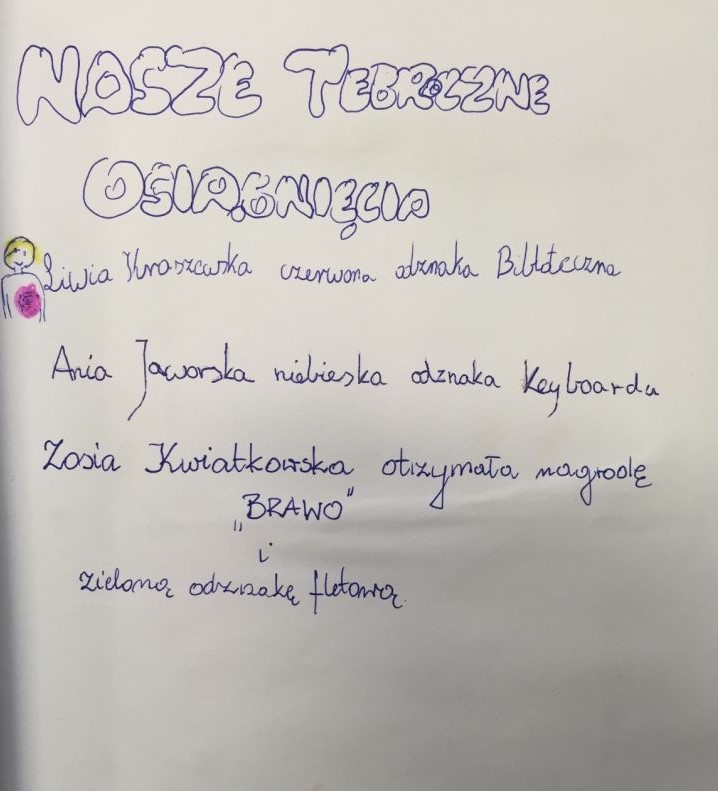 NASZE TEGROCZNE
OSIĄGNIĘCIA
Liwia Kraszewska czerwona odznaka Bibloteczna
Ania Jaworska niebieska odznaka keyboardu
Zosia Kwiatkowska otrzymała nagrodę
„BRAWO”
i
zieloną odznakę fletową.